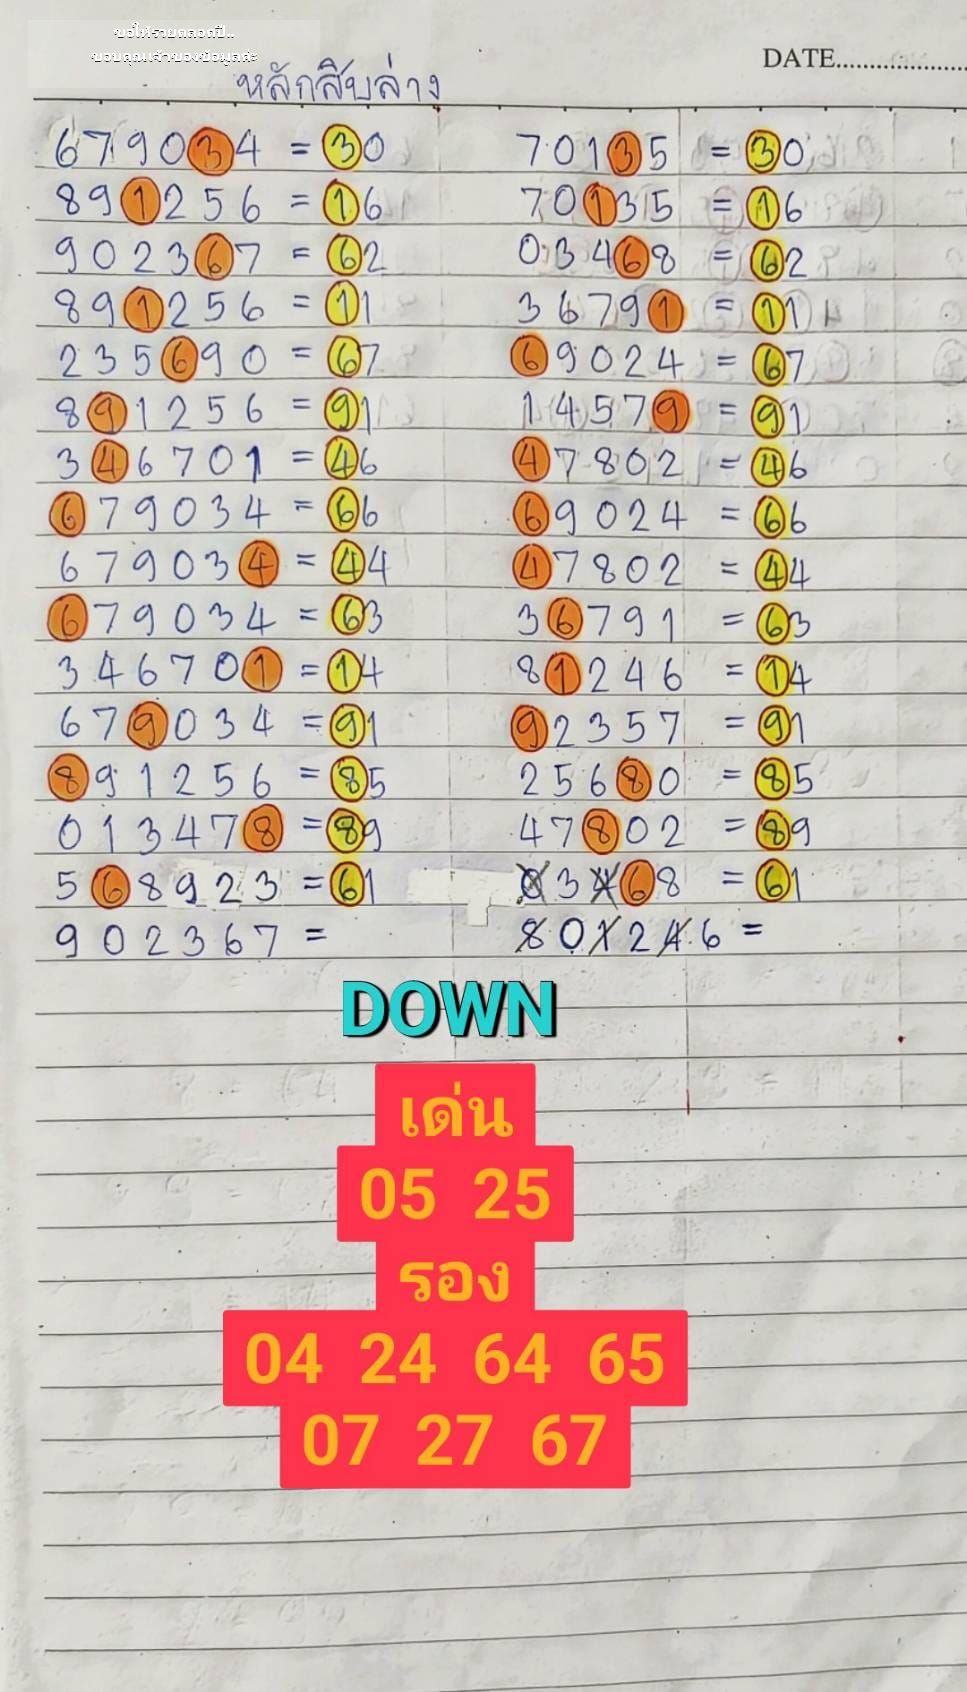 ขอให้รวยตลอดปี..
ขอบคุณเจ้าของข้อมูลค่ะ
DATE....................
หลักสิบล่าง
679034 = 30 70135 = 30
891256 = 16 70135 = 16
902367 = 62 03468 = 62
891256 = 11 36791 = 11
235690 = 67 69024 = 67
891256 = 91 14579 = 91
346701 = 46 47802 = 46
679034 = 66 69024 = 66
679034 = 44 47802 = 44
679034 = 63 36791 = 63
346701 = 14 81246 = 14
679034 = 91 92357 = 91
891256 = 85 25680 = 85
013478 = 89 47802 = 89
568923 = 61 03468 = 61
902367 = 801246 =
DOWN
เด่น
05 25
รอง
04 24 64 65
07 27 67